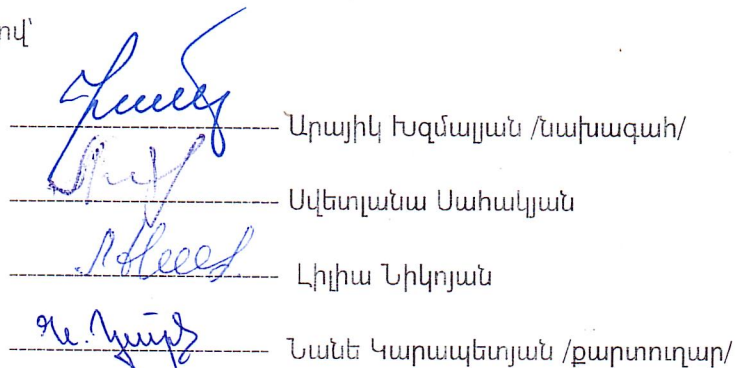 ով՝
Արայիկ Խզմալյան /նախագահ/
Սվետլանա Սահակյան
Լիլիա Նիկոյան
Նանե Կարապետյան /քարտուղար/